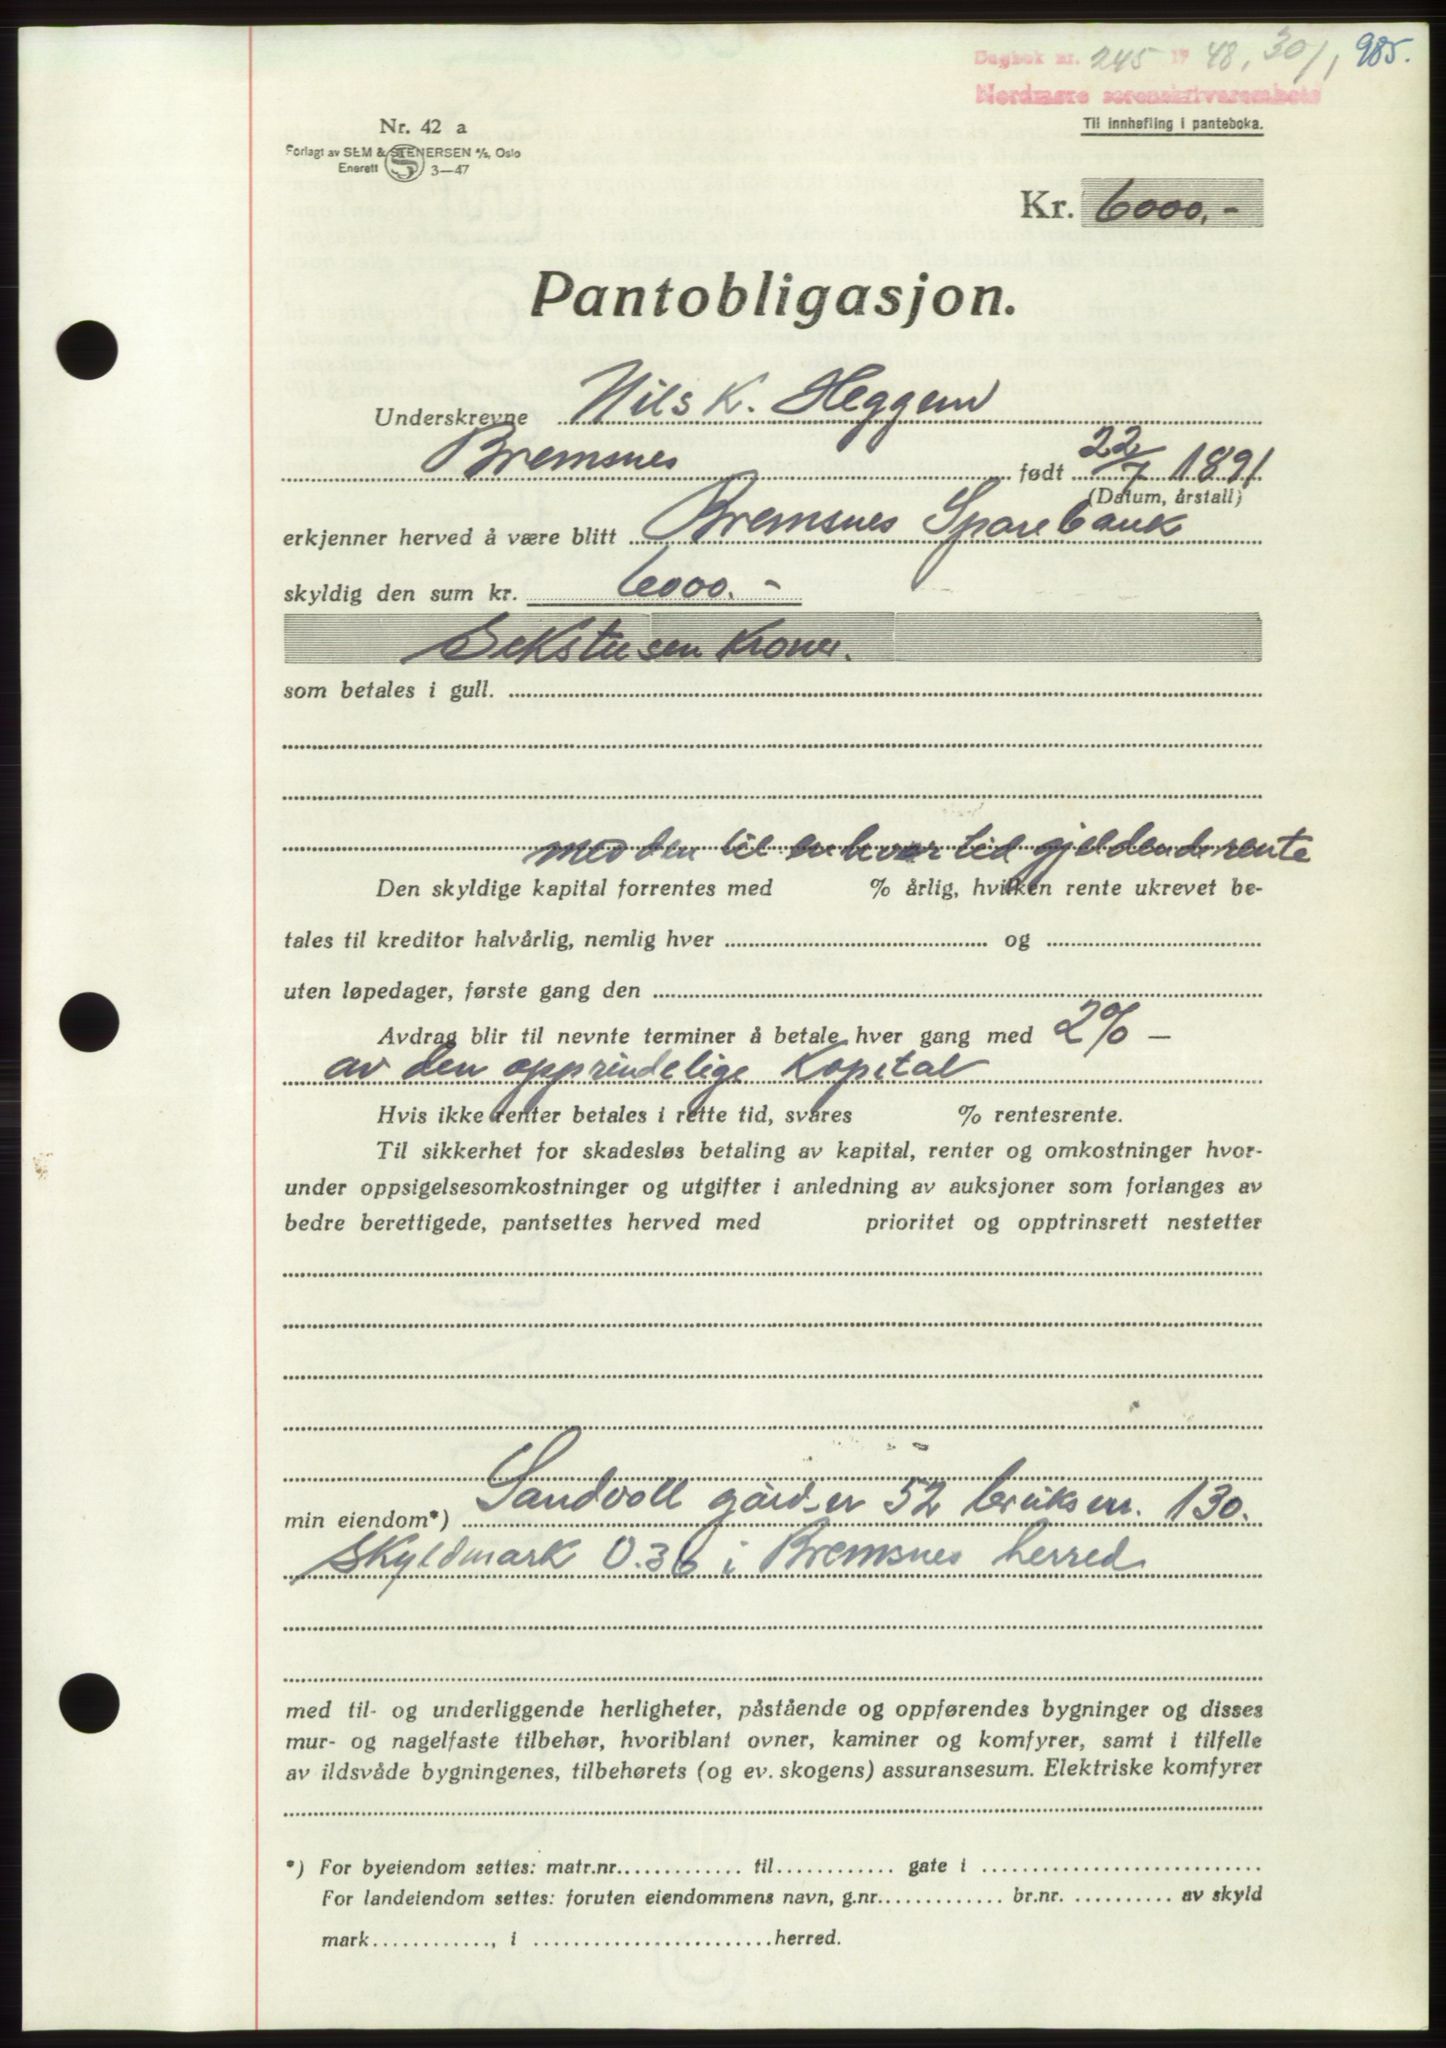 Dagbok nr. 245 19 48, 30/1 985.
Nordmøre sorenskriverembete
Til innhefting i panteboka.
Nr. 42 a
Forlagt av SEM & STENERSEN A/S, Oslo
Enerett S 3—47
Kr. 6000,-
Pantobligasjon.
Underskrevne Nils K. Heggem
Bremsnes født 22/7 1891
(Datum, årstall)
erkjenner herved å være blitt Bremsnes Sparebank
skyldig den sum kr. 6000.-
Sekstusen Kroner.
som betales i gull.
med den til enhver tid gjeldende rente
Den skyldige kapital forrentes med % årlig, hvilken rente ukrevet be-
tales til kreditor halvårlig, nemlig hver og
uten løpedager, første gang den
Avdrag blir til nevnte terminer å betale hver gang med 2% —
av den opprindelige Kapital
Hvis ikke renter betales i rette tid, svares % rentesrente.
Til sikkerhet for skadesløs betaling av kapital, renter og omkostninger hvor-
under oppsigelsesomkostninger og utgifter i anledning av auksjoner som forlanges av
bedre berettigede, pantsettes herved med prioritet og opptrinsrett nestetter
min eiendom*) Sandvoll gårdsnr 52 bruksnr. 130.
Skyldmark 0.36 i Bremsnes herred
med til- og underliggende herligheter, påstående og oppførendes bygninger og disses
mur- og nagelfaste tilbehør, hvoriblant ovner, kaminer og komfyrer, samt i tilfelle
av ildsvåde bygningenes, tilbehørets (og ev. skogens) assuransesum. Elektriske komfyrer
*) For byeiendom settes: matr.nr. til gate i
For landeiendom settes: foruten eiendommens navn, g.nr. br.nr. av skyld
mark , i herred.